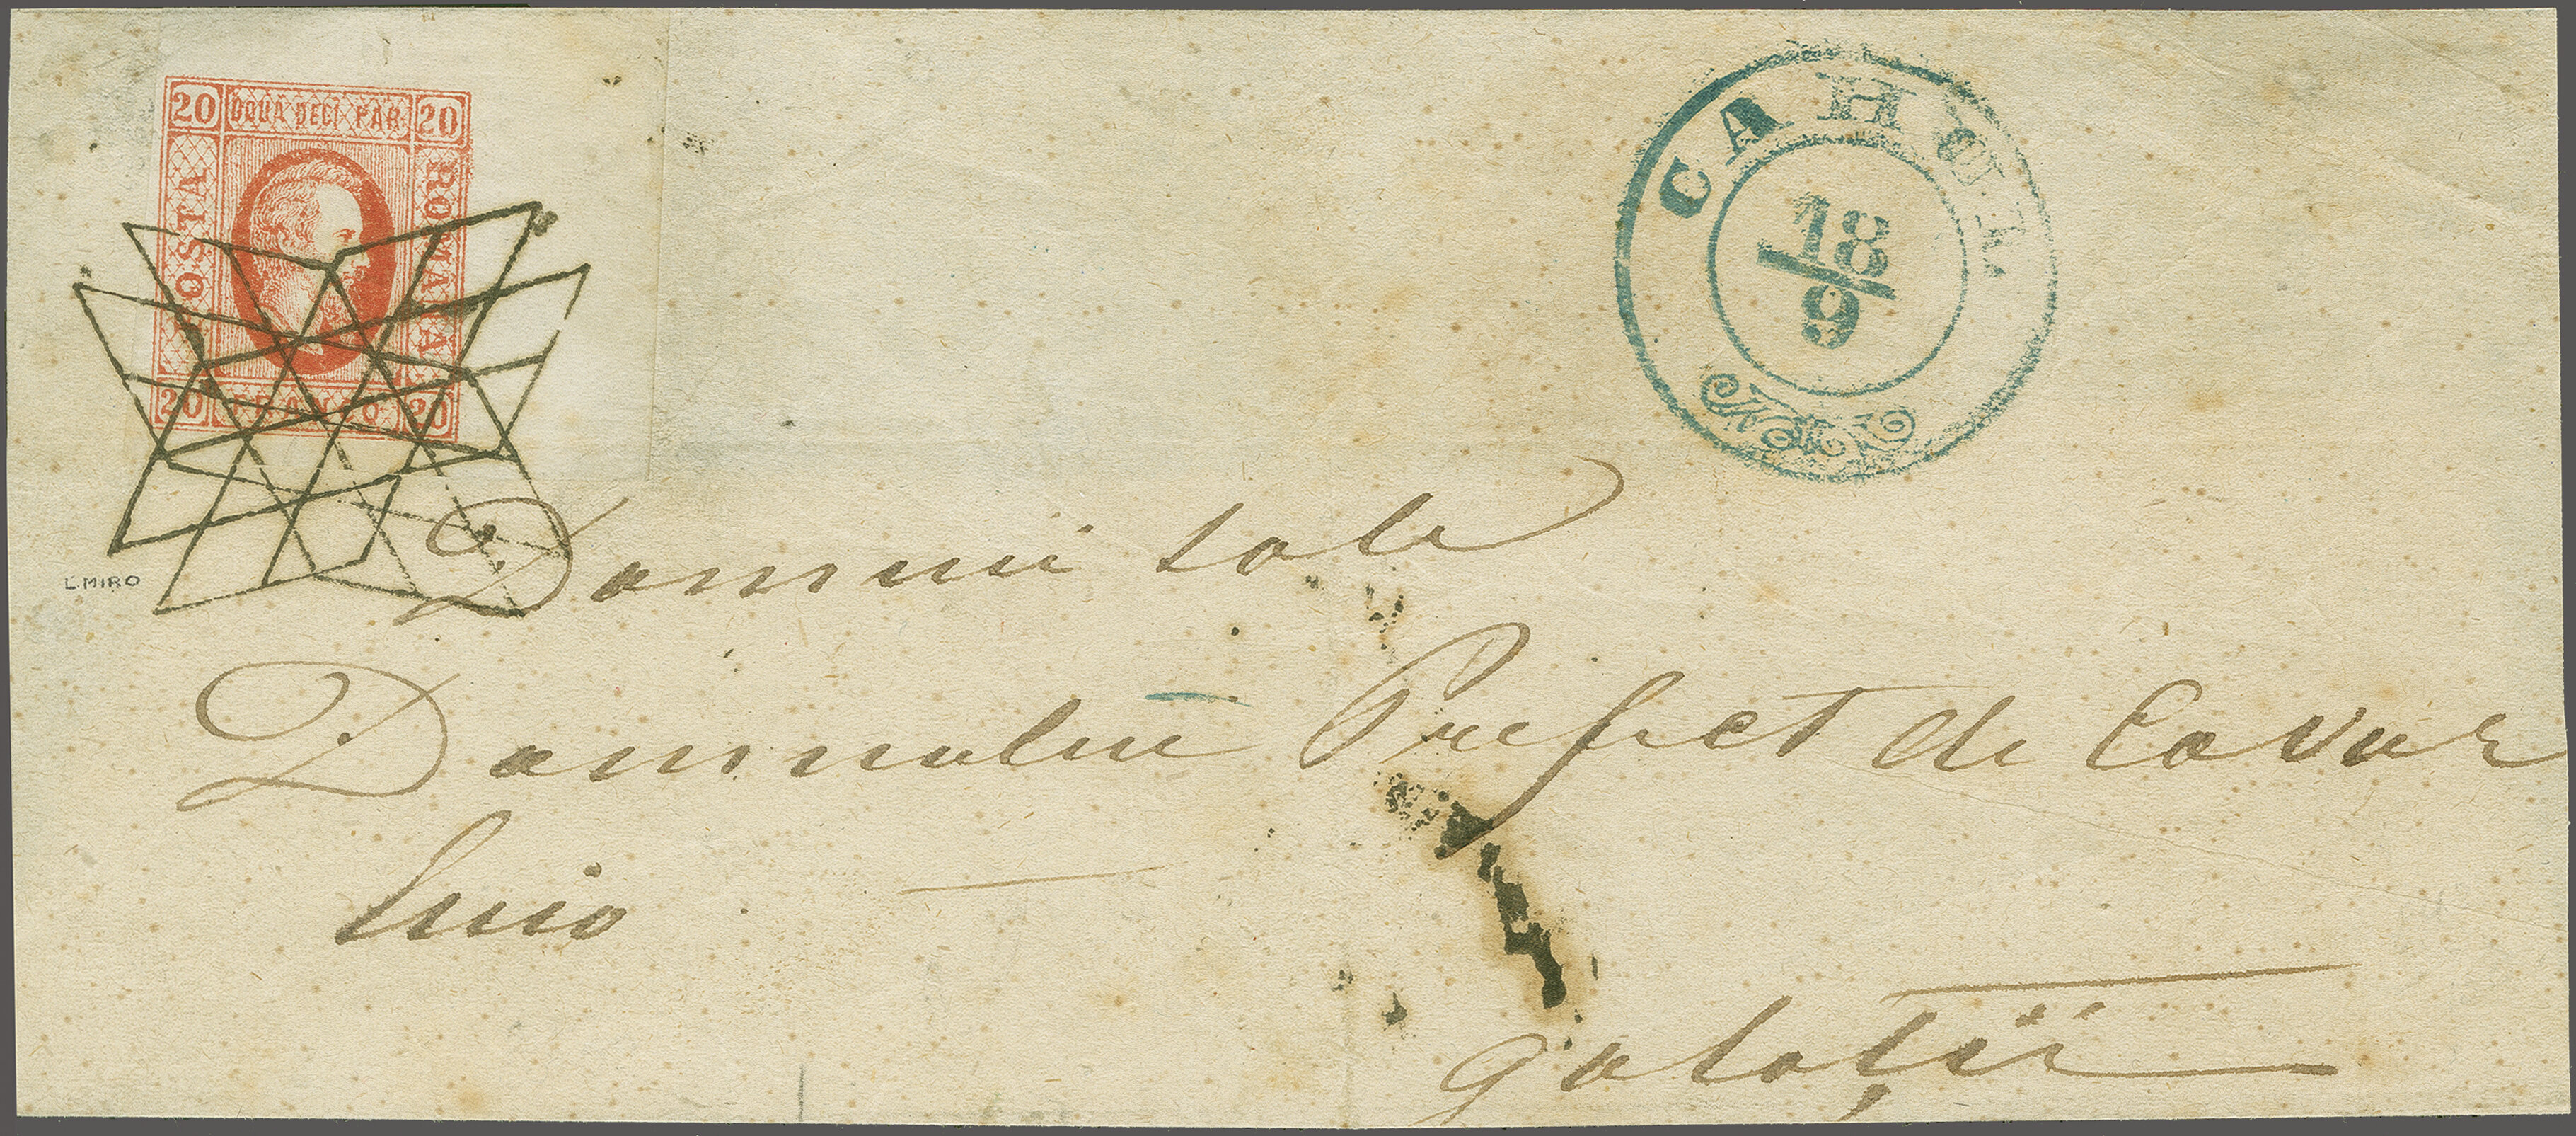 20 DOUA DECI PAR 20
POSTA
ROMANA
20 FRANCO 20
CAHUL
18
9
L.MIRO
Domnii sale
Domnului Prefect de Covur
luio
Galaţii